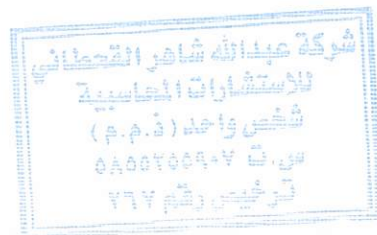 شركة عبدالله شاهر القحطاني
للاستشارات المحاسبية
شخص واحد (ذ.م.م)
س.ت
ترخيص رقم ٢٦٧